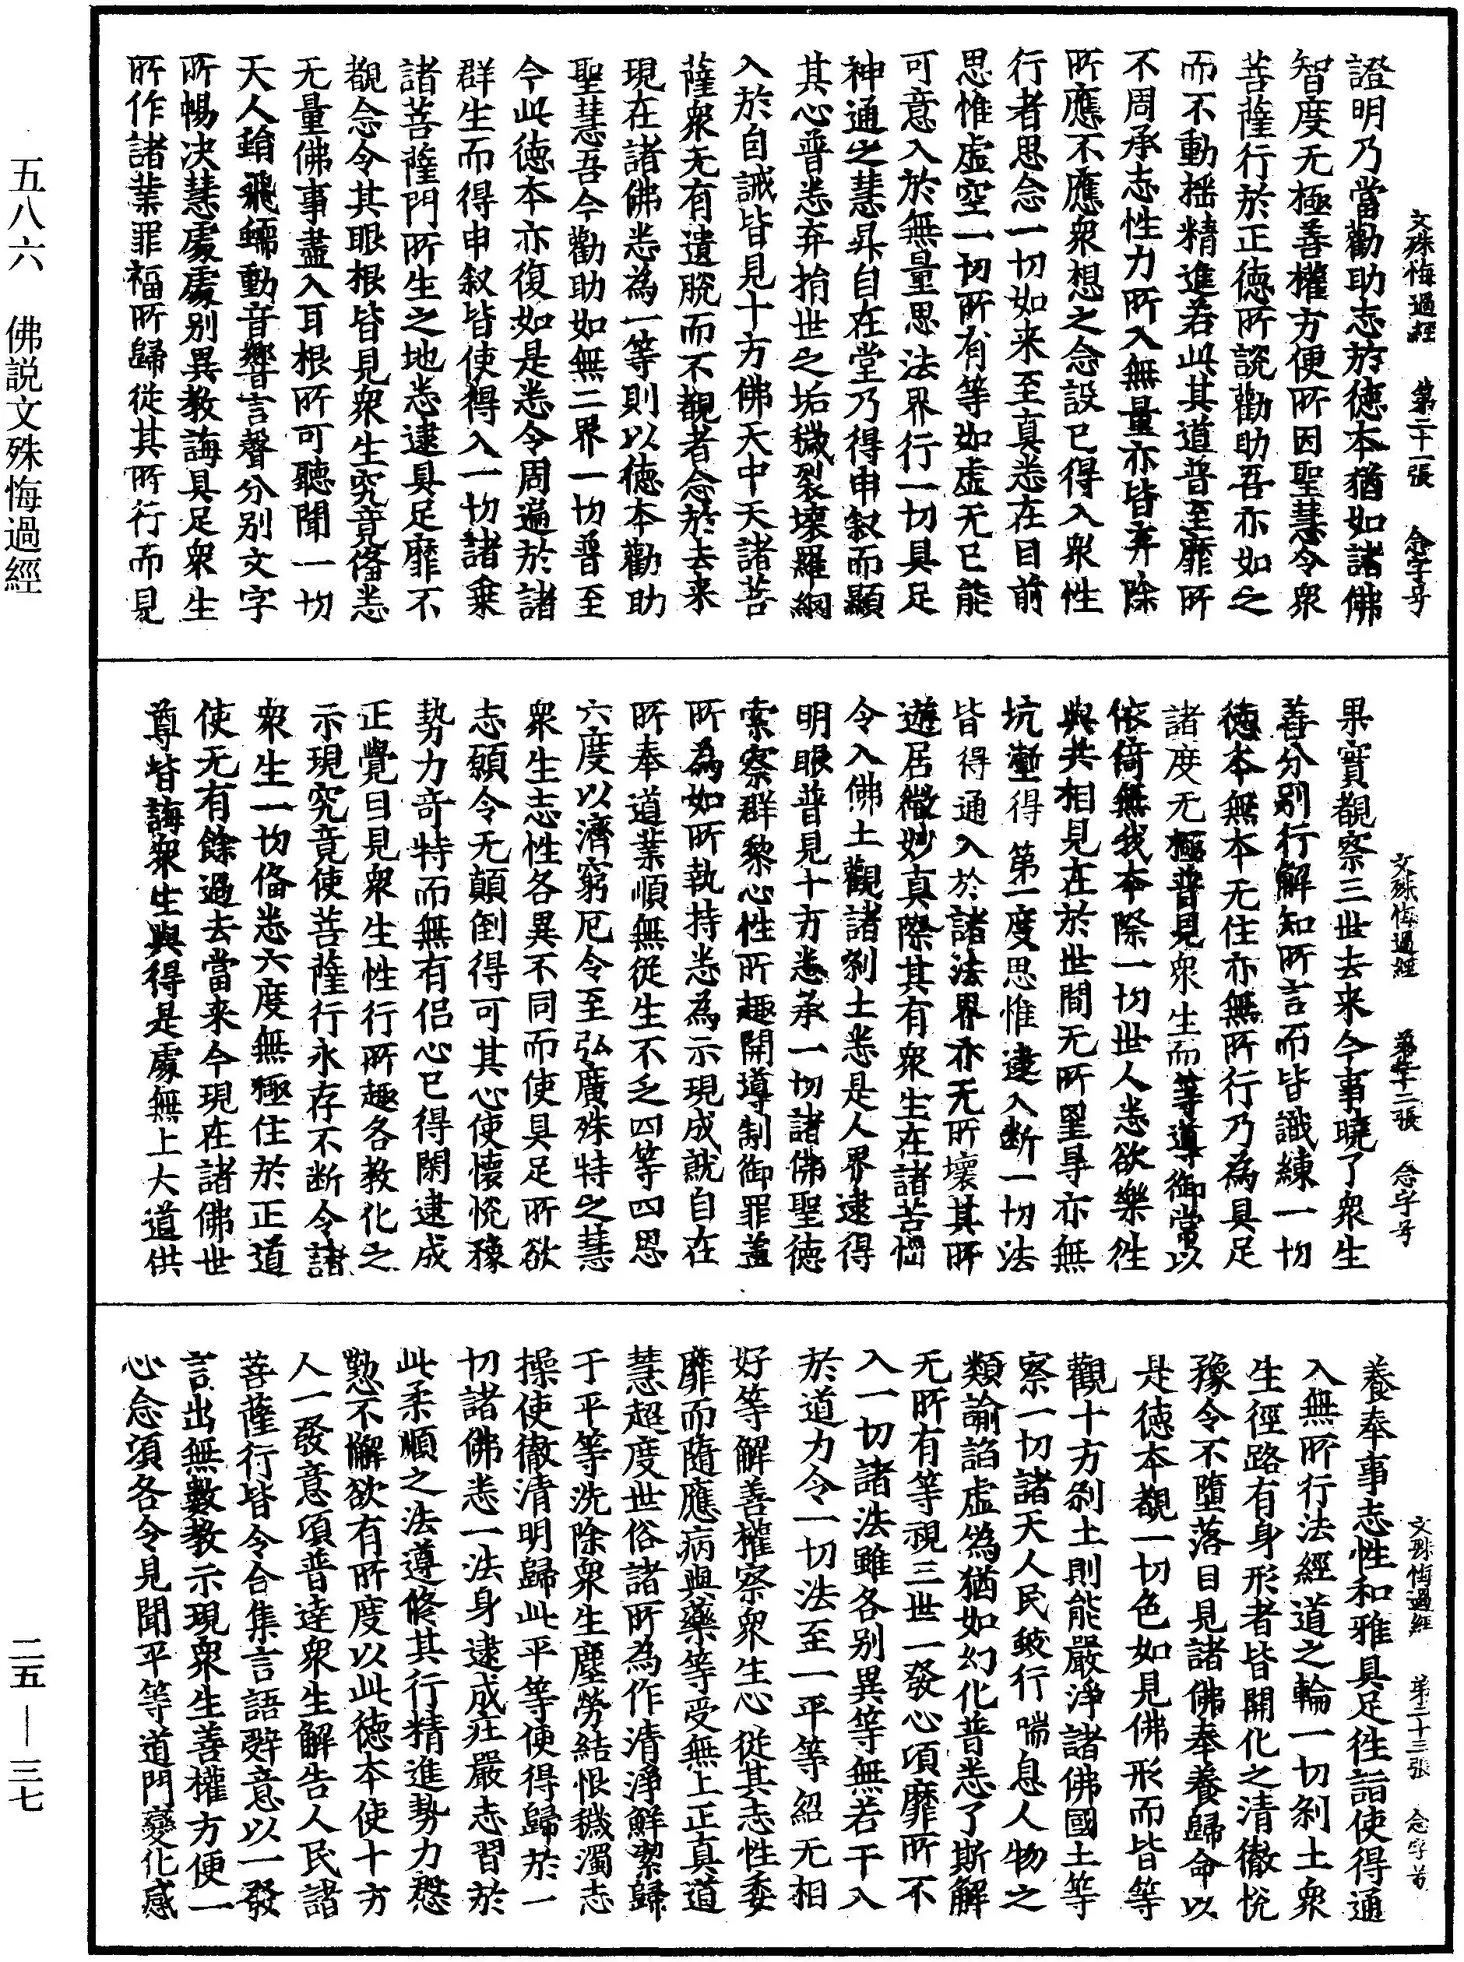 文殊悔過經　第二十一張　念字号
證明乃當勸助志於徳本猶如諸佛
智度无極善權方便所因聖慧令衆
菩薩行於正徳所説勸助吾亦如之
而不動揺精進若此其道普至靡所
不周承志性力所入無量亦皆弃除
所應不應衆想之念設已得入衆性
行者思念一切如来至真悉在目前
思惟虚空一切所有等如虚无已能
可意入於無量思法界行一切具足
神通之慧昇自在堂乃得申叙而顯
其心普悉弃捐世之垢穢裂壊羅網
入於自誡皆見十方佛天中天諸菩
薩衆无有遺脱而不覩者念於去来
現在諸佛悉為一等則以徳本勸助
聖慧吾今勸助如無二界一切普至
今此徳本亦復如是悉令周遍於諸
群生而得申叙皆使得入一切諸乗
諸菩薩門所生之地悉逮具足靡不
覩念令其眼根皆見衆生究竟俻悉
无量佛事盡入耳根所可聽聞一切
天人蜎飛蠕動音響言聲分别文字
所暢决慧處處别異教誨具足衆生
所作諸業罪福所歸從其所行而見
文殊悔過經　第二十二張　念字号
果實觀察三世去来今事曉了衆生
善分别行解知所言而皆識練一切
徳本無本无住亦無所行乃為具足
諸度无極普見衆生而等導御常以
依倚無我本際一切世人悉欲樂徃
與共相見在於世間无所罣㝵亦無
坑塹得第一度思惟逮入断一切法
皆得通入於諸法界亦无所壞其所
遊居微妙真際其有衆生在諸苦惱
令入佛土觀諸刹土悉是人界逮得
明眼普見十方悉承一切諸佛聖徳
索察群黎心性所趣開導制御罪蓋
所為如所執持悉為示現成就自在
所奉道業順無從生不乏四等四恩
六度以濟窮厄令至弘廣殊特之慧
衆生志性各異不同而使具足所欲
志願令无顛倒得可其心使懐恱豫
勢力竒特而無有侣心已得閑逮成
正覺目見衆生性行所趣各教化之
示現究竟使菩薩行永存不断令諸
衆生一切俻悉六度無極住於正道
使无有餘過去當来今現在諸佛世
尊皆誨衆生與得是處無上大道供
文殊悔過經　第二十三張　念字号
養奉事志性和雅具足徃詣使得通
入無所行法經道之輪一切刹土衆
生徑路有身形者皆開化之清徹恱
豫令不墮落目見諸佛奉養歸命以
是徳本覩一切色如見佛形而皆等
觀十方刹土則能嚴淨諸佛國土等
察一切諸天人民蚑行喘息人物之
類諭諂虚偽猶如幻化普悉了斯解
无所有等視三世一發心頃靡所不
入一切諸法雖各别異等無若干入
於道力令一切法至一平等紹无相
好等解善權察衆生心從其志性委
靡而隨應病與藥等受無上正真道
慧超度世俗諸所為作清淨鮮㓗歸
于平等洗除衆生塵勞結恨穢濁志
操使徹清明歸此平等便得歸於一
切諸佛悉一法身逮成莊嚴志習於
此柔順之法遵修其行精進勢力慇
懃不懈欲有所度以此徳本使十方
人一發意頃普逹衆生解告人民諸
菩薩行皆令合集言語辤意以一發
言出無數教示現衆生善權方便一
心念頃各令見聞平等道門變化感
五八六　佛説文殊悔過經
二五—三七